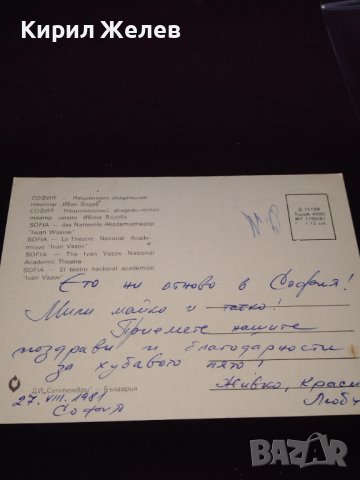 Кирил Желев
СОФИЯ — Национален академичен
театър „Иван Вазов"
СОФИЯ — Национальный академический
театр имени Ивана Вазова
SOFIA — das Nationale Akademietheater
"Iwan Wasow"
SOFIA — Le Théâtre National Acade-
mique "Ivan Vazov"
SOFIA — The Ivan Vazov National
Academic Theatre
SOFIA — El teatro nacional academico
"Ivan Vazov"
Ето ни отново в София!
Мили майко и татко!
Приемете нашите
поздрави и благодарности
за хубавото лято!
Живко, Краси
Любч
27.VIII.1981
София
ДИ „Септември" — България
BAZAR